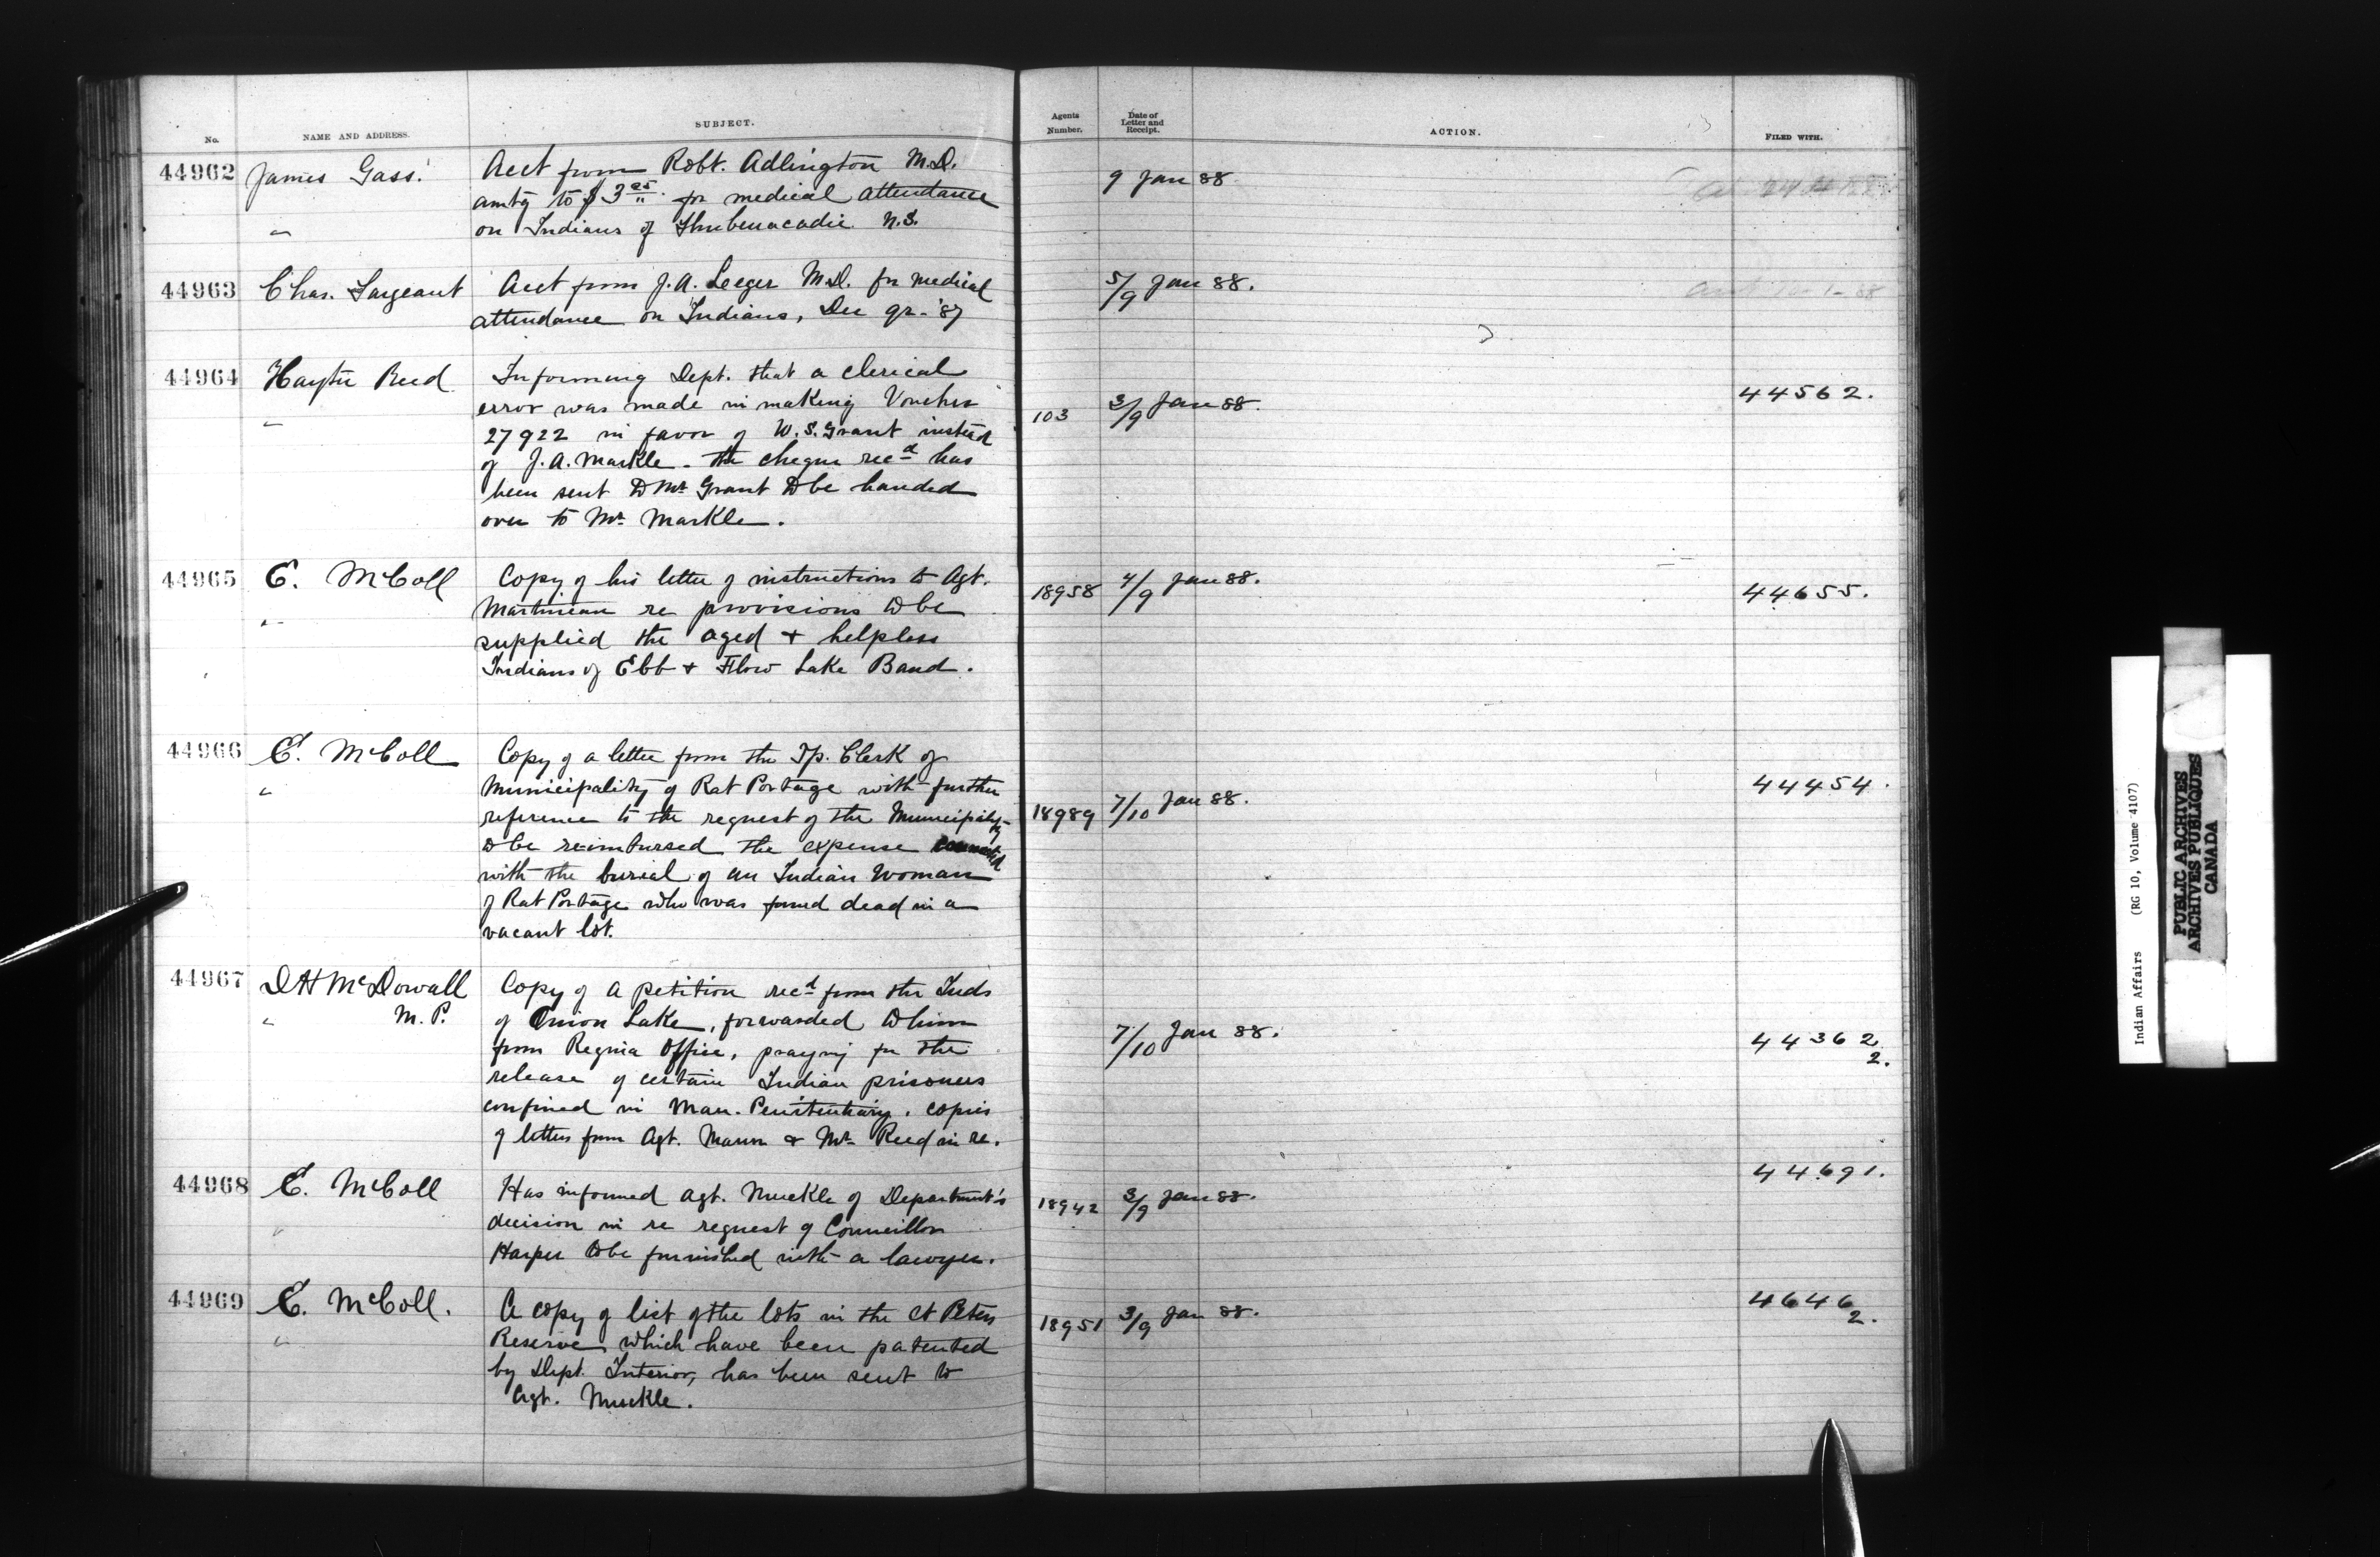 No.
NAME AND ADDRESS.
SUBJECT.
Agents
Number.
Date of
Letter and
Receipt.
ACTION.
FILED WITH.
44962
James Gass.
"
Acct from Robt. Adlington M.D.
amtg to $3 25/" for medical attendance
on Indians of Shubenacadie N.S.
9 Jan 88
44963
Chas. Sargeant
Acct from J.A. Leeger M.D. for medical
attendance on Indians, Dec qr. '87
5/9 Jan 88.
44964
Hayter Reed
"
Informing Dept. that a clerical
error was made in making Voucher
27922 in favor of W.S. Grant instead
of J.A. Markle. The cheque recd has
been sent to Mr Grant to be handed
over to Mr Markle.
103
3/9 Jan 88.
44562.
44965
E. McColl
"
Copy of his letter of instructions to Agt.
Martineau re provisions to be
supplied the aged + helpless
Indians of Ebb + Flow Lake Band.
18958
4/9 Jan 88.
44655.
44966
E. McColl
"
Copy of a letter from the Tp. Clerk of
Municipality of Rat Portage with further
reference to the request of the Municipality
to be reimbursed the expense connected
with the burial of an Indian Woman
of Rat Portage who was found dead in a
vacant lot.
18989
7/10 Jan 88.
44454.
44967
D H McDowall
" M.P.
Copy of a petition recd from the Inds
of Onion Lake, forwarded to him
from Regina Office, praying for the
release of certain Indian prisoners
confined in Man. Penitentiary. copies
of letters from Agt. Mann & Mr Reed in re.
7/10 Jan 88.
44362
2.
44968
E. McColl
"
Has informed Agt. Muckle of Department's
decision in re request of Councillor
Harper to be furnished with a lawyer.
18942
3/9 Jan 88.
44691.
44969
E. McColl.
"
A copy of list of the lots in the St Peters
Reserve which have been patented
by Dept. Interior, has been sent to
Agt. Muckle.
18951
3/9 Jan 88.
4646
2.
Indian Affairs (RG 10, Volume 4107)
PUBLIC ARCHIVES
ARCHIVES PUBLIQUES
CANADA